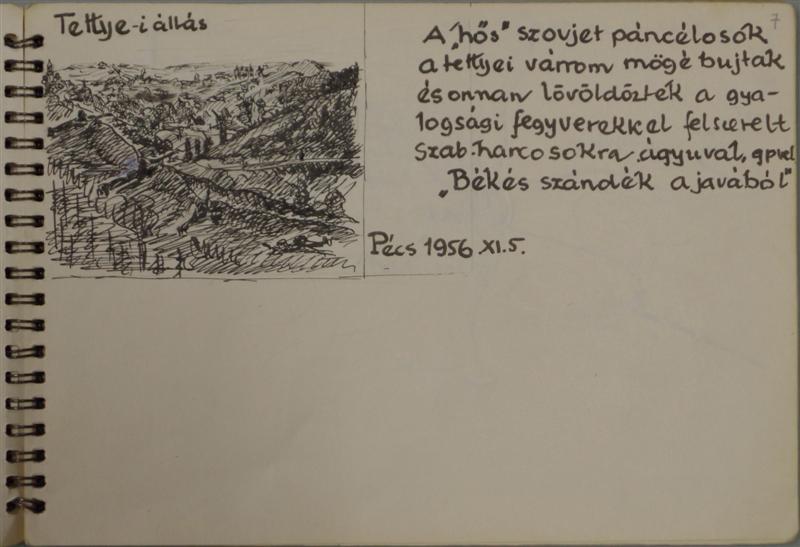 Tettye-i állás
7
A „hős" szovjet páncélosok
a tettyei várrom mögé bujtak
és onnan lövöldöztek a gya-
logsági fegyverekkel felszerelt
szab.harcosokra ágyuval, gpvel
„Békés szándék a javából"
Pécs 1956 XI.5.